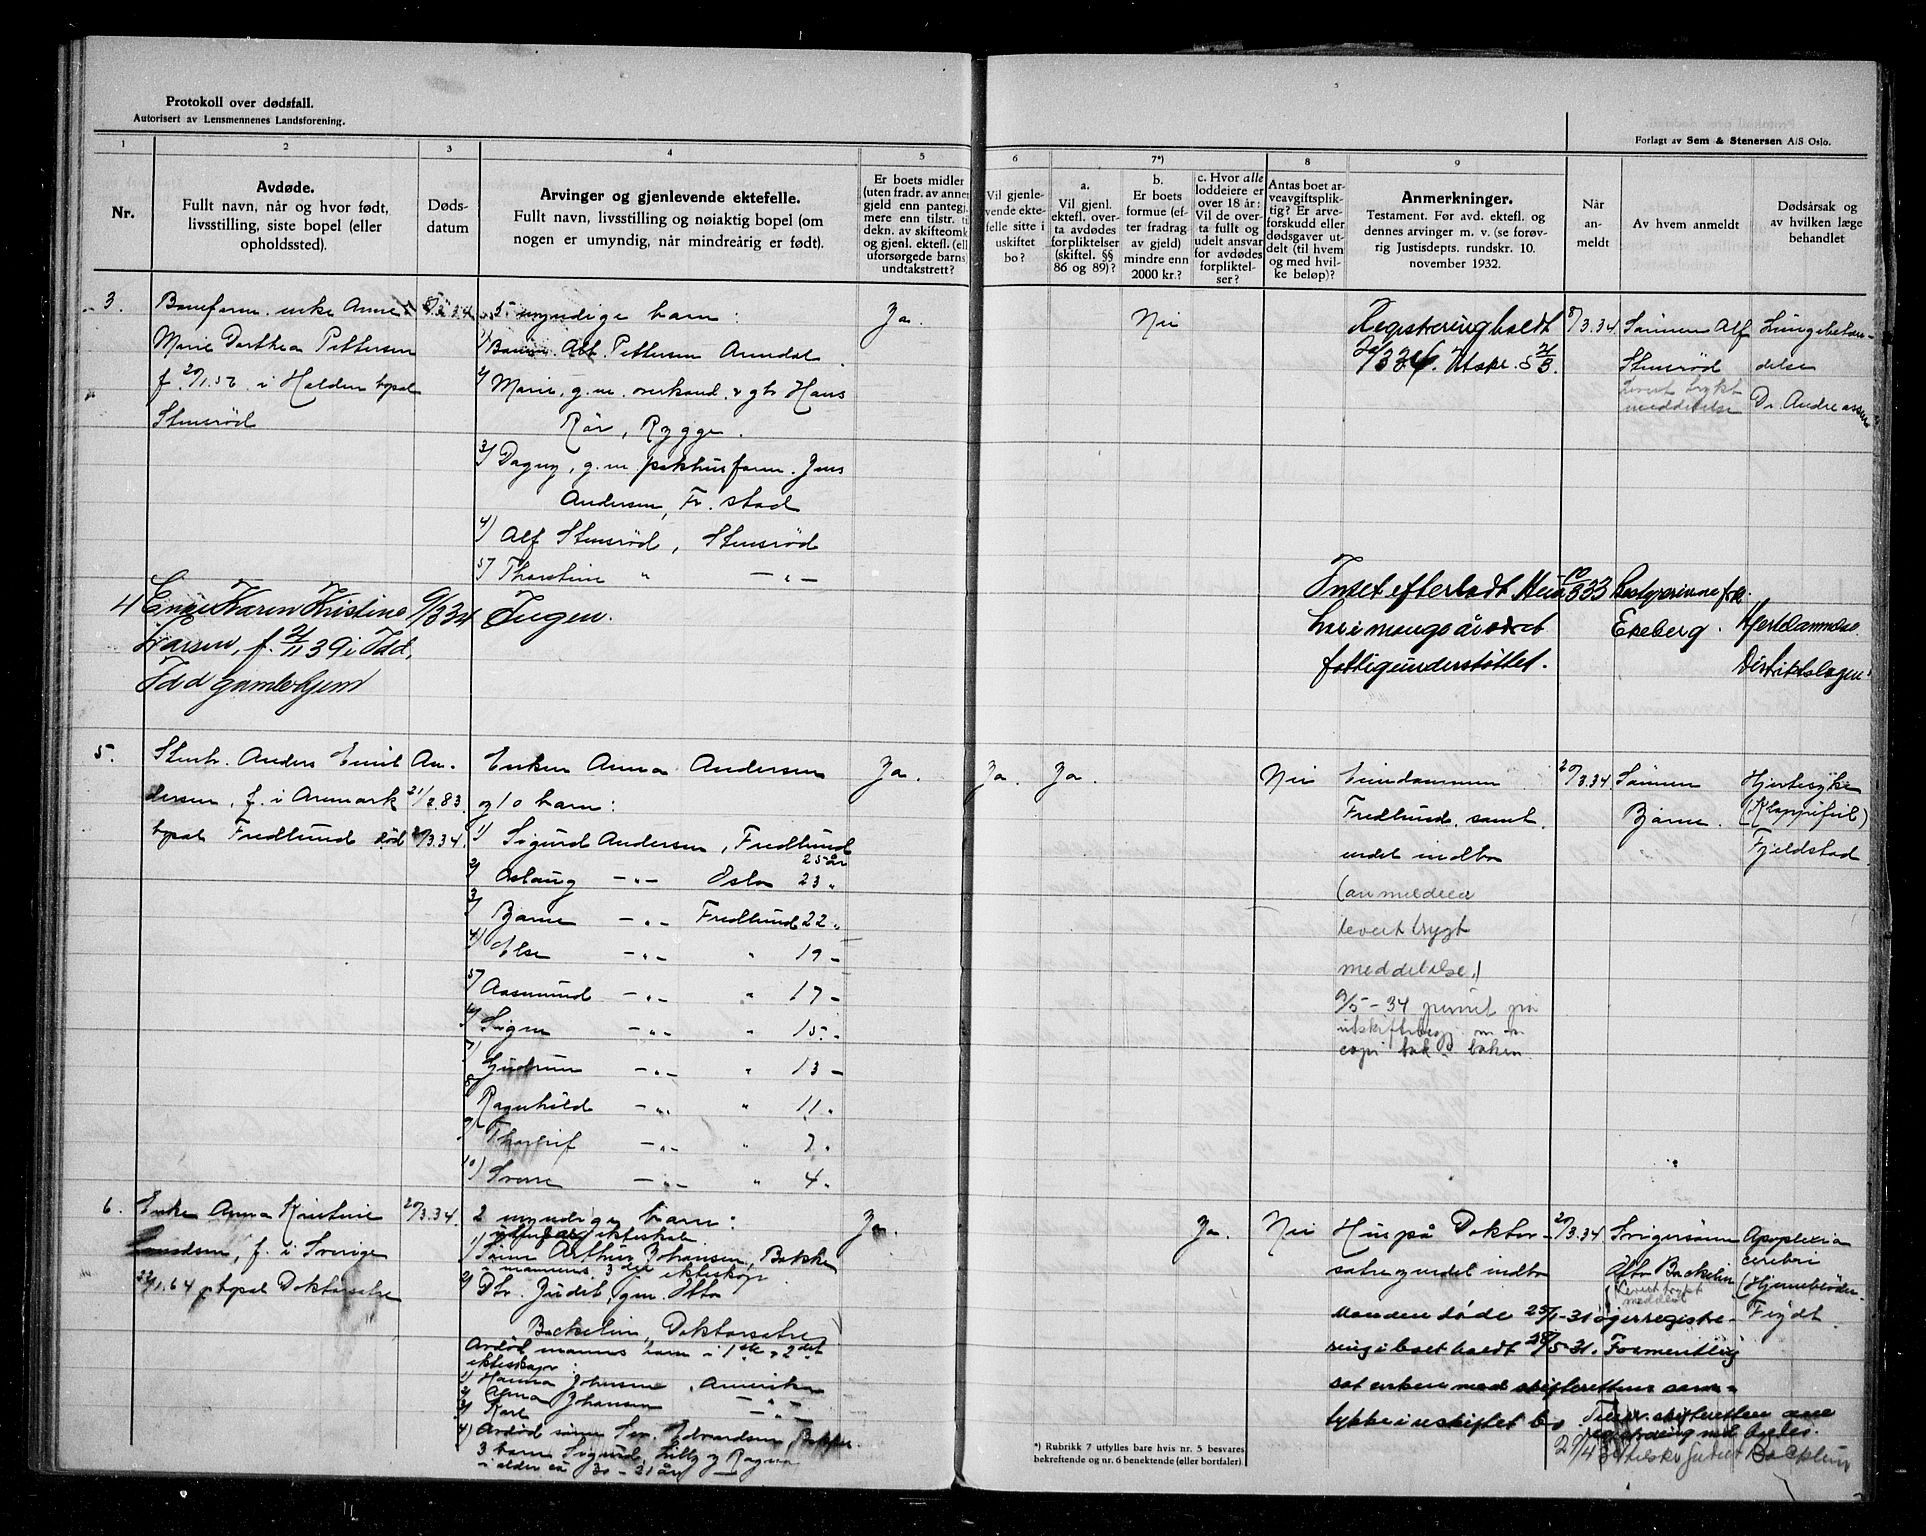 Protokoll over dødsfall.
Autorisert av Lensmennenes Landsforening.
Forlagt av Sem & Stenersen A/S Oslo.
1
2
3
4
5
6
7*)
8
9
Nr.
Avdøde.
Fullt navn, når og hvor født,
livsstilling, siste bopel (eller
opholdssted).
Døds-
datum
Arvinger og gjenlevende ektefelle.
Fullt navn, livsstilling og nøiaktig bopel (om
nogen er umyndig, når mindreårig er født).
Er boets midler
(uten fradr. av annen
gjeld enn pantegj
mere enn tilstr. ti
dekn. av skifteomk
og gjenl. ektef. (ell
uforsørgede barns)
undtakstrett?
Vil gjenle-
vende ekte-
felle sitte i
uskiftet
bo?
a.
Vil gjenl.
ektefl. over-
ta avdødes
forpliktelser
(skiftel. §§
86 og 89)?
b.
Er boets
formue (ef-
ter fradrag
av gjeld)
mindre enn
2000 kr.?
c. Hvor alle
loddeiere er
over 18 år:
Vil de over-
ta fullt og
udelt ansvar
for avdødes
forpliktel-
ser?
Antas boet ar-
veavgiftsplik-
tig? Er arve-
forskudd eller
dødsgaver ut-
delt (til hvem
og med hvil-
ke beløp)?
Anmerkninger.
Testament. Før avd. ektefl. og
dennes arvinger m. v. (se forøv-
rig Justisdepts. rundskr. 10.
november 1932.
Når
an-
meldt
Av hvem anmeldt
Dødsårsak og
av hvilken læge
behandlet
3.
enke Anne
Marie Dorthea Pettersen
f. 20/1.56 i Halden bopel
Stenerød
5 myndige barn:
1) Alb. Pettersen Arendal
2) Marie, g.m. Hans
Rør, Rygge.
3) Dagny, g.m. pakhusform. Jens
Andersen, Fr.stad
4) Alf Stenerød, Stenerød
5) Thorstein " — " —
Ja.
Nei
Registrering holdt
8/3.34
Sønnen Alf
Stenerød
Levert trykt
meddelelse
Lungebeten-
delse
Dr. Andreassen
4
Enke Karen Kristine
Larsen, f. 2/11 39 i Idd,
Idd gamlehjem
9/3 34
Ingen.
Intet efterladt
har i mange år været
fattigunderstøttet.
Bestyrerinne frk.
Ekeberg.
Hjertelammelse.
Distriktslægen
5.
Stenh. Anders Emil An-
dersen, f. i Aremark 21/2.83.
bopel Fredlund død 20/3.34.
Enken Anna Andersen
og 10 barn:
1) Sigurd Andersen, Fredlund
25 år
2) Aslaug — " — Oslo 23 "
3) Bjarne — " — Fredlund 22 "
4) Else — " — " 19 —
5) Aasmund — " — " 17 —
6) Signe — " — " 15 —
7) Gudrun — " — " 13 —
8) Ragnhild — " — " 11 "
9) Thorleif — " — " 7 "
10) Sverre — " — " 4 "
Ja.
Ja.
Ja.
Nei
Eiendommen
Fredlund, samt
endel indbo
(anmelder
levert trygt
meddelelse)
9/5-34 purret på
20/3.34
Sønnen
Bjarne.
Hjertesyke
(Klappefeil)
Fjeldstad
6.
Enke Anna Kristine
Knudsen, f. i Sverige
22/1.64, bopel Doktorsætre
20/3.34.
2 myndige barn:
1) Sønn Arthur Johansen, Bakke
i mannens 3dje ekteskap
2) Dtr. Judit, g.m. Otto
Backelin, Doktorsætre
Avdød manns barn i 1ste og 2det
ekteskap:
1) Hanna Johansen, Amerika
2) Anna Johansen — " —
3) Karl — " —
4) Avdød sønn Edvardsen,
3 barn Sigurd, Lilly og Ragna
i alder ca 20-21 år
Ja.
Ja.
Nei
Hus på Doktor-
sætre og endel indbo
Manden døde 25/1-31 og registre-
ring i boet holdt 28/5-31. Forment lig
sat enken med skifterettens sam-
tykke i uskiftet bo.
20/3.34
Svigersønn
Otto Backelin
Levert trykt
meddelelse
Apoplexia
cerebri
(Hjerneblødn.
Frydt.
*) Rubrikk 7 utfylles bare hvis nr. 5 besvares
bekreftende og nr. 6 benektende (eller bortfaler).